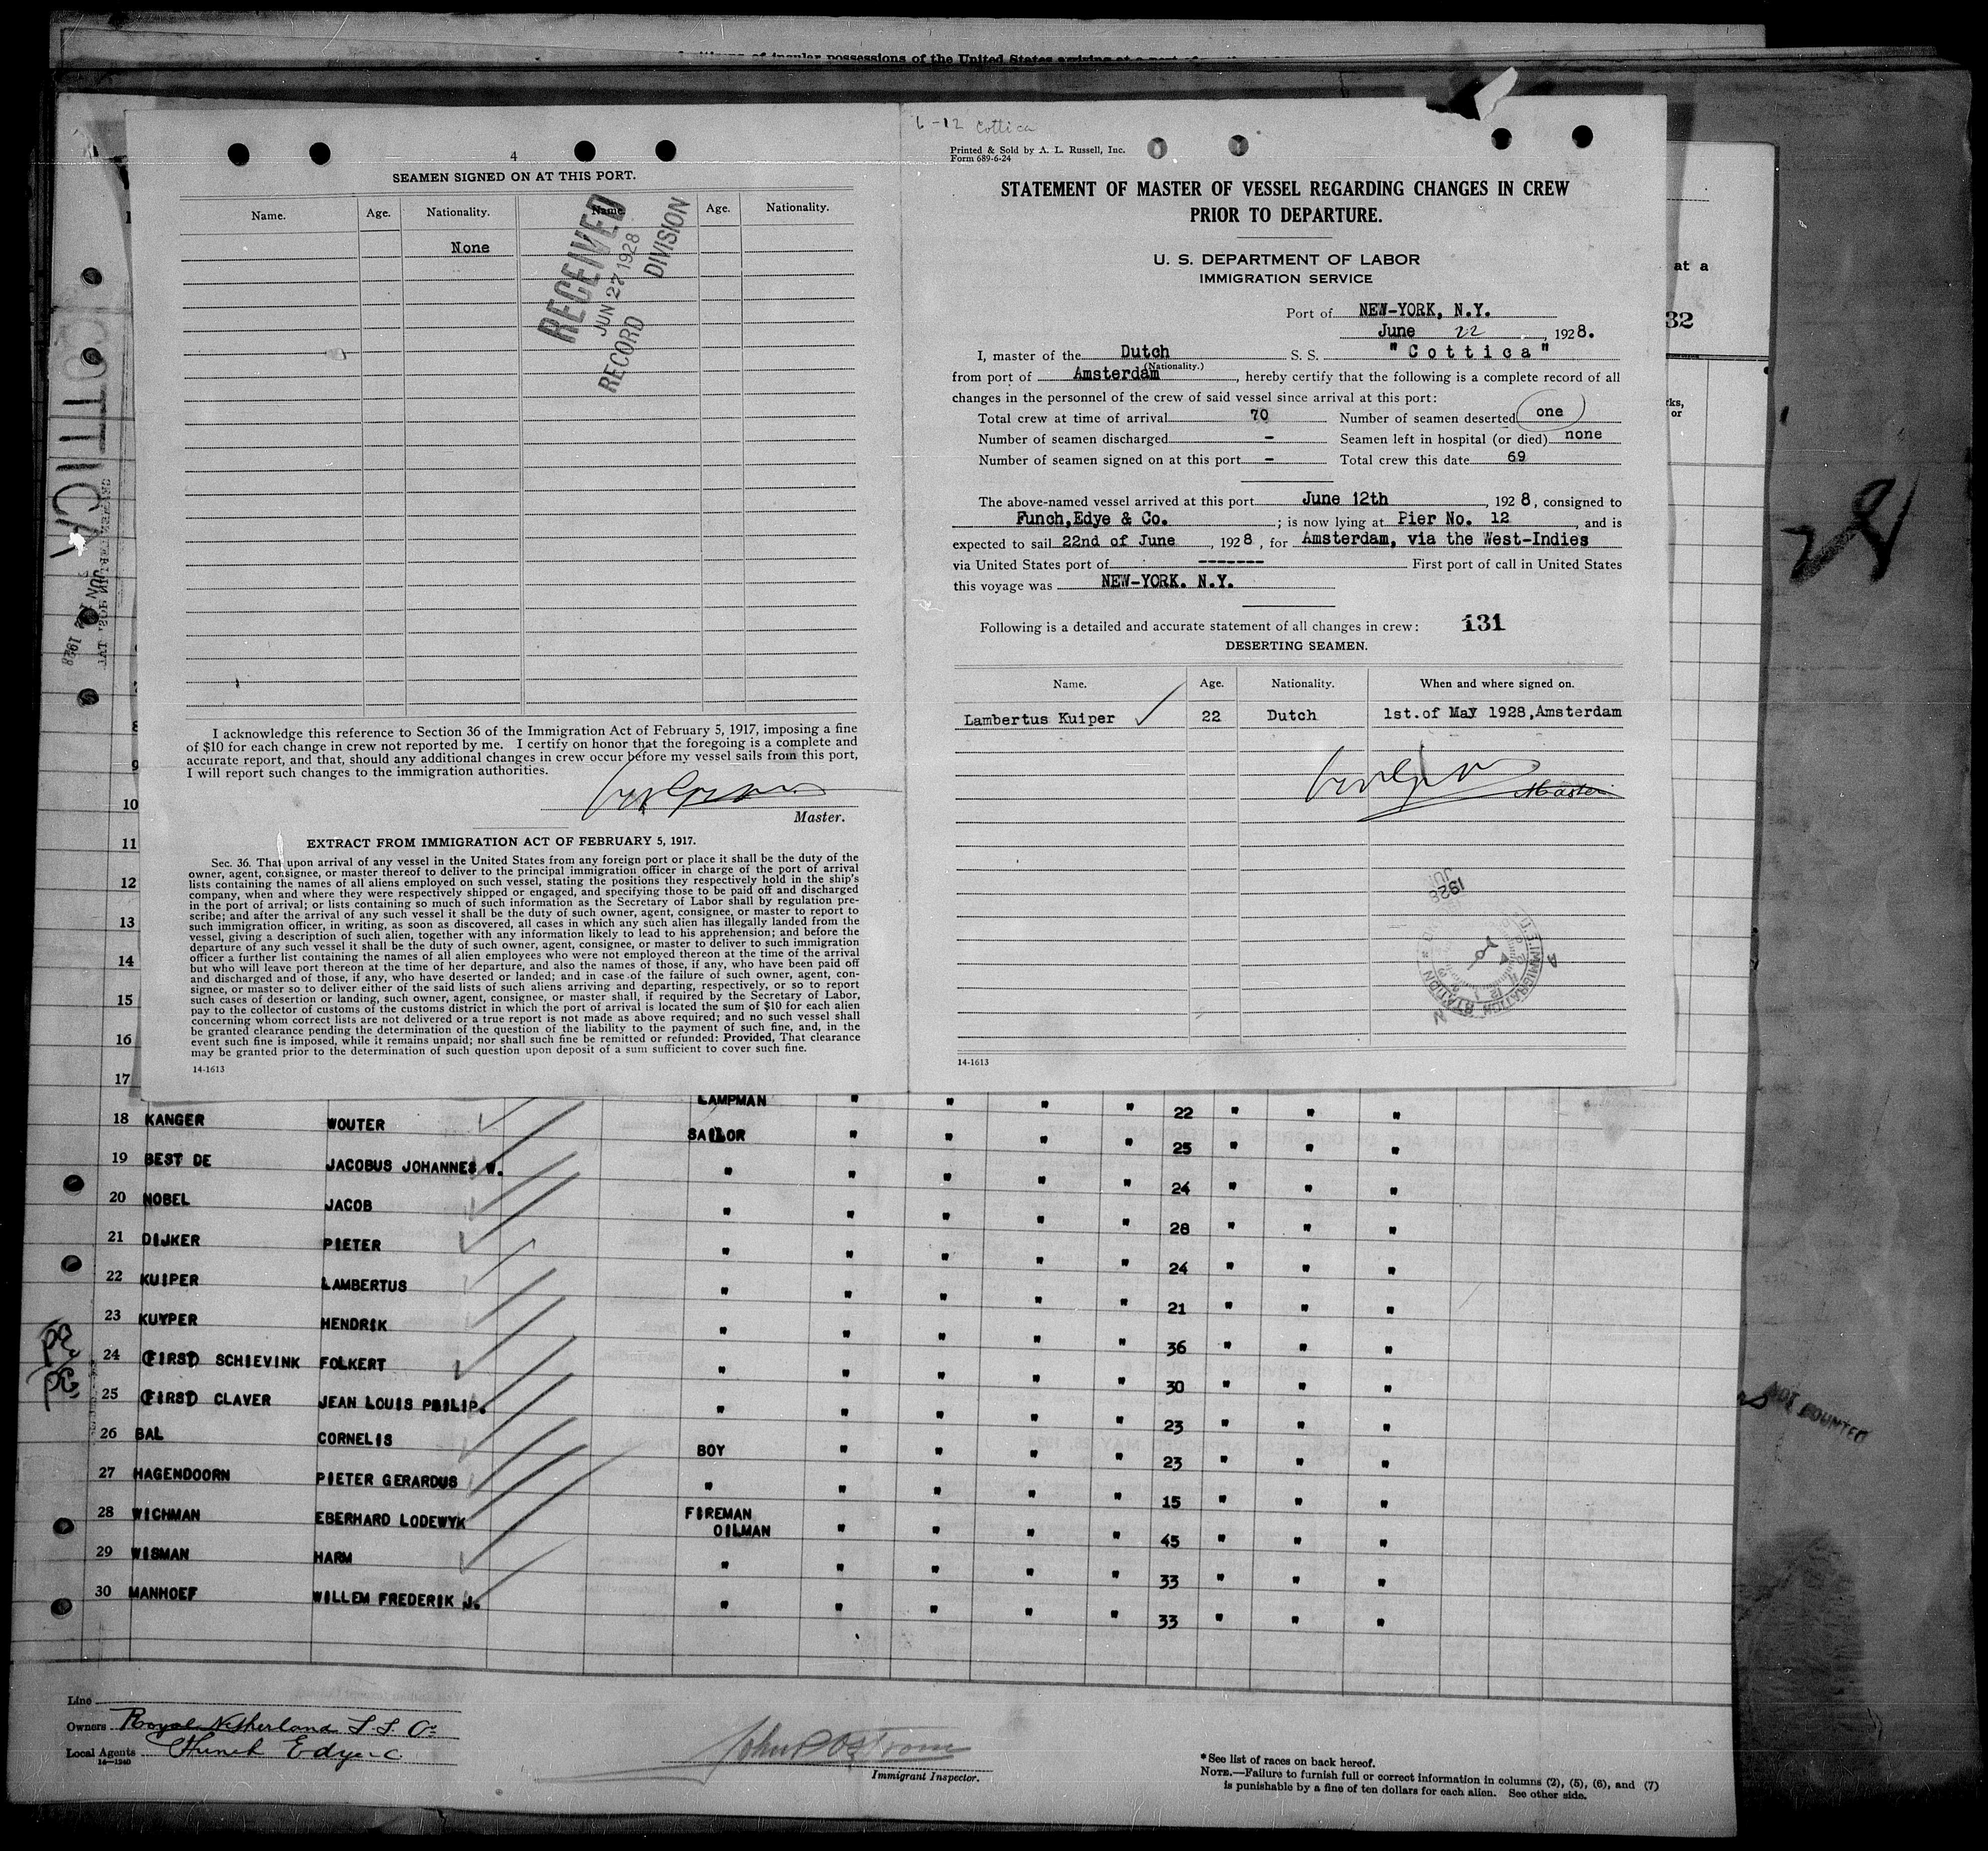 of insular possessions of the United States arriving at a port of
4
SEAMEN SIGNED ON AT THIS PORT.
Name. Age. Nationality. Name. Age. Nationality.
None
RECEIVED
JUN 27 1928
RECORD DIVISION
I acknowledge this reference to Section 36 of the Immigration Act of February 5, 1917, imposing a fine
of $10 for each change in crew not reported by me. I certify on honor that the foregoing is a complete and
accurate report, and that, should any additional changes in crew occur before my vessel sails from this port,
I will report such changes to the immigration authorities.
Master.
EXTRACT FROM IMMIGRATION ACT OF FEBRUARY 5, 1917.
Sec. 36. That upon arrival of any vessel in the United States from any foreign port or place it shall be the duty of the
owner, agent, consignee, or master thereof to deliver to the principal immigration officer in charge of the port of arrival
lists containing the names of all aliens employed on such vessel, stating the positions they respectively hold in the ship's
company, when and where they were respectively shipped or engaged, and specifying those to be paid off and discharged
in the port of arrival; or lists containing so much of such information as the Secretary of Labor shall by regulation pre-
scribe; and after the arrival of any such vessel it shall be the duty of such owner, agent, consignee, or master to report to
such immigration officer, in writing, as soon as discovered, all cases in which any such alien has illegally landed from the
vessel, giving a description of such alien, together with any information likely to lead to his apprehension; and before the
departure of any such vessel it shall be the duty of such owner, agent, consignee, or master to deliver to such immigration
officer a further list containing the names of all alien employees who were not employed thereon at the time of the arrival
but who will leave port thereon at the time of her departure, and also the names of those, if any, who have been paid off
and discharged and of those, if any, who have deserted or landed; and in case of the failure of such owner, agent, con-
signee, or master so to deliver either of the said lists of such aliens arriving and departing, respectively, or so to report
such cases of desertion or landing, such owner, agent, consignee, or master shall, if required by the Secretary of Labor,
pay to the collector of customs of the customs district in which the port of arrival is located the sum of $10 for each alien
concerning whom correct lists are not delivered or a true report is not made as above required; and no such vessel shall
be granted clearance pending the determination of the question of the liability to the payment of such fine, and, in the
event such fine is imposed, while it remains unpaid; nor shall such fine be remitted or refunded: Provided, That clearance
may be granted prior to the determination of such question upon deposit of a sum sufficient to cover such fine.
14-1613
6-12 Cottica
Printed & Sold by A. L. Russell, Inc.
Form 689-6-24
STATEMENT OF MASTER OF VESSEL REGARDING CHANGES IN CREW
PRIOR TO DEPARTURE.
U. S. DEPARTMENT OF LABOR
IMMIGRATION SERVICE
Port of NEW-YORK, N.Y.
June 22, 1928.
I, master of the Dutch S. S. "Cottica"
(Nationality.)
from port of Amsterdam, hereby certify that the following is a complete record of all
changes in the personnel of the crew of said vessel since arrival at this port:
Total crew at time of arrival 70 Number of seamen deserted one
Number of seamen discharged - Seamen left in hospital (or died) none
Number of seamen signed on at this port - Total crew this date 69
The above-named vessel arrived at this port June 12th, 1928, consigned to
Funch,Edye & Co.; is now lying at Pier No. 12, and is
expected to sail 22nd of June, 1928, for Amsterdam, via the West-Indies
via United States port of ------- First port of call in United States
this voyage was NEW-YORK. N.Y.
Following is a detailed and accurate statement of all changes in crew: 131
DESERTING SEAMEN.
Name. Age. Nationality. When and where signed on.
Lambertus Kuiper 22 Dutch 1st.of May 1928,Amsterdam
Master
1928
U.S. IMMIGRATION STATION
14-1613
at a
32
rks,
or
COTTICA
JUN 12 1928
1
8
9
10
11
12
13
14
15
16
17
LAMPMAN " " " " 22 " " "
18 KANGER WOUTER SAILOR " " " " 25 " " "
19 BEST DE JACOBUS JOHANNES W. " " " " " 24 " " "
20 NOBEL JACOB " " " " " 28 " " "
21 DIJKER PIETER " " " " " 24 " " "
22 KUIPER LAMBERTUS " " " " " 21 " " "
23 KUYPER HENDRIK " " " " " 36 " " "
24 (FIRST) SCHIEVINK FOLKERT " " " " " 30 " " "
25 (FIRST) CLAVER JEAN LOUIS PHILIP. " " " " " 23 " " "
26 BAL CORNELIS BOY " " " " 23 " " "
27 HAGENDOORN PIETER GERARDUS " " " " " 15 " " "
28 WICHMAN EBERHARD LODEWYK FIREMAN OILMAN " " " " 45 " " "
29 WISMAN HARM " " " " " 33 " " "
30 MANHOEF WILLEM FREDERIK J. " " " " " 33 " " "
NOT COUNTED
Line
Owners Royal Netherland S.S. Co
Local Agents Funch Edye & C
14-1240
John P Ostrom
Immigrant Inspector.
*See list of races on back hereof.
NOTE.—Failure to furnish full or correct information in columns (2), (5), (6), and (7)
is punishable by a fine of ten dollars for each alien. See other side.